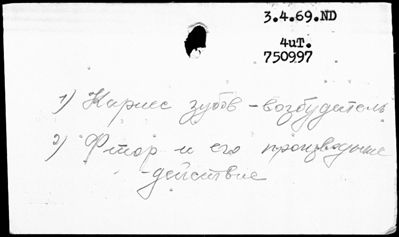 3.4.69.ND
4иТ.
750997
1) Кариес зубов - возбудитель
2) Фтор и его производные
- действие